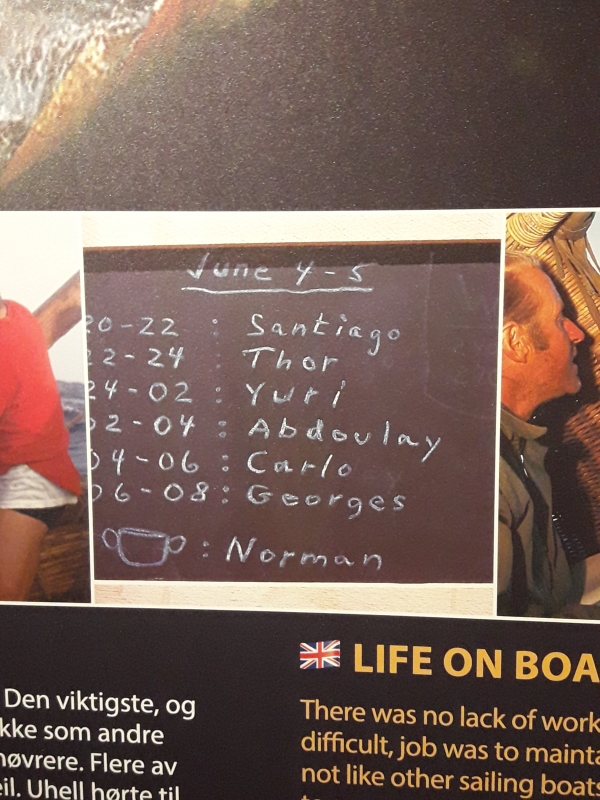 June 4-5
20-22 : Santiago
22-24 Thor
24-02 : Yuri
02-04 : Abdoulay
04-06 : Carlo
06-08 : Georges
: Norman
LIFE ON BOA
Den viktigste, og
kke som andre
nøvrere. Flere av
eil. Uhell hørte til
There was no lack of work
difficult, job was to mainta
not like other sailing boats